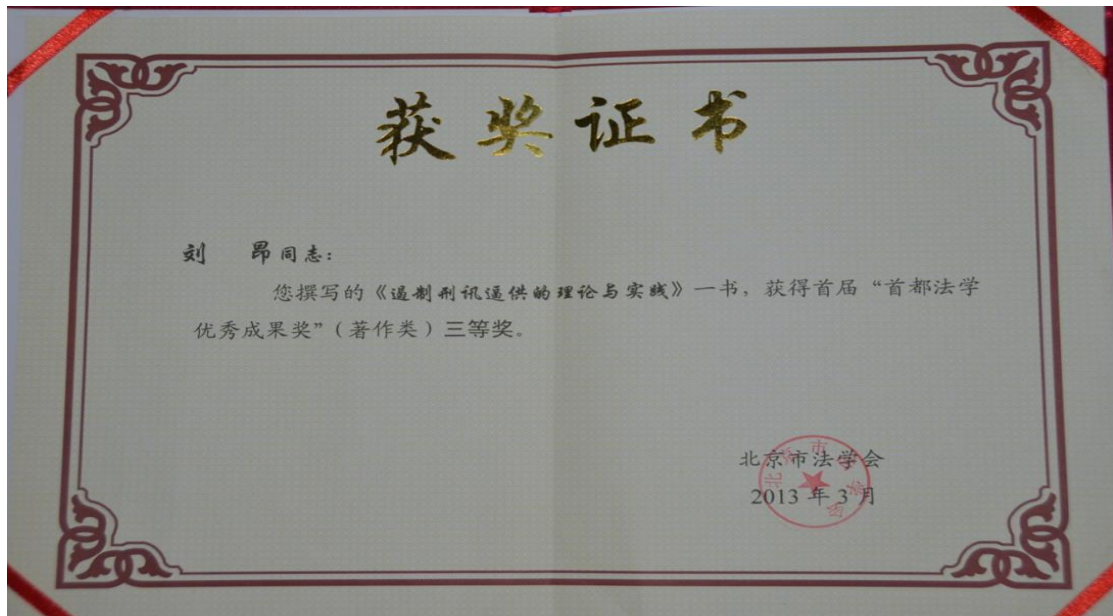 获奖证书
刘 昂同志：
您撰写的《遏制刑讯逼供的理论与实践》一书，获得首届“首都法学
优秀成果奖”（著作类）三等奖。
北京市法学会
2013 年 3 月
北京市法学会